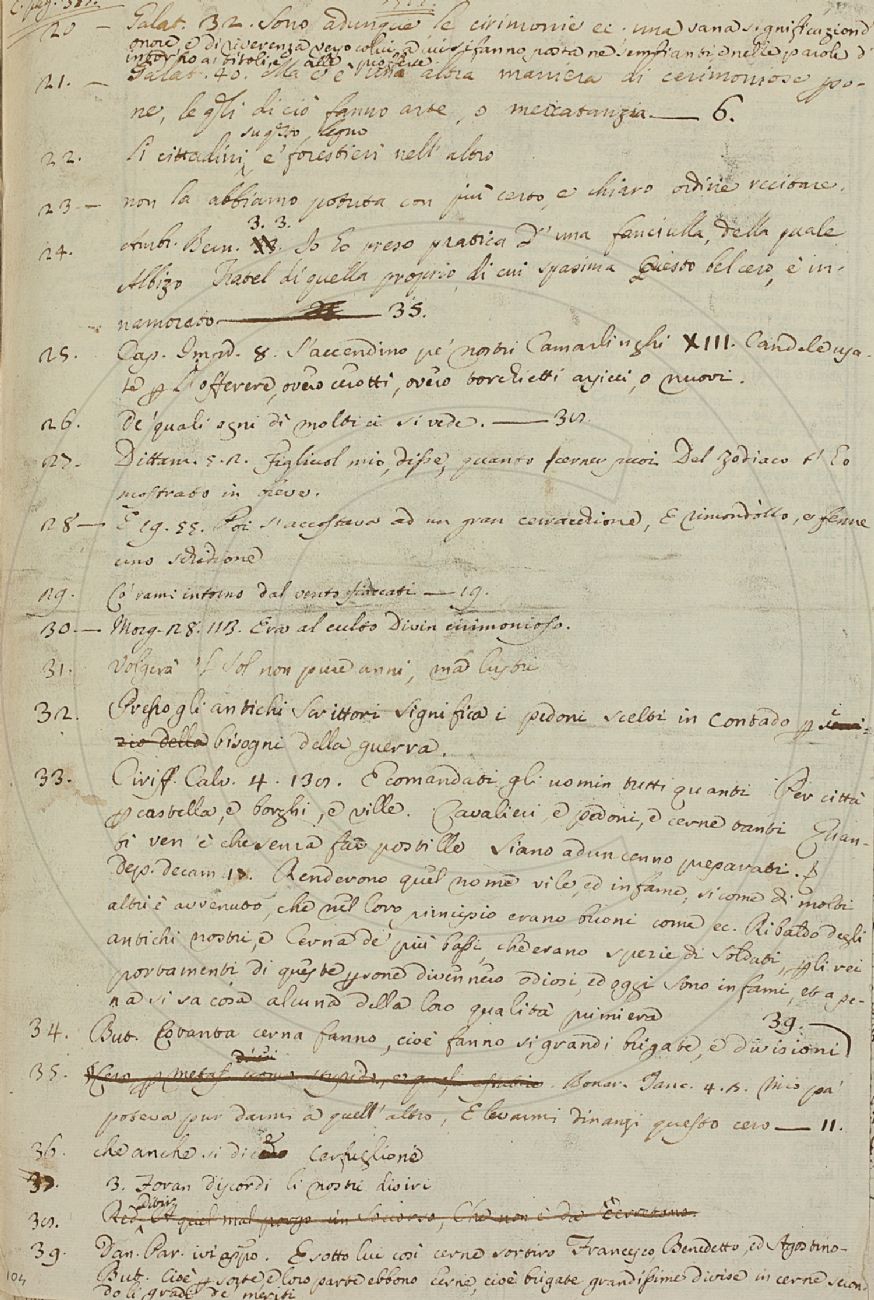 20 — Galat. 32. Sono adunque le cirimonie ec. una vana significazion d'
onore, e di riverenza verso colui, a cui si fanno, posta ne' sembianti, e nelle parole d'
intorno a' titoli, e alle proferte.
21. — Galat. 40. Ma ci è una altra maniera di cerimoniose per-
ne, le qli di ciò fanno arte, o mercatanzia — 6.
sugéto, legno
22. li cittadini, e' forestieri nell' altro
23 — non la abbiamo potuta con più certo, e chiaro ordine recitare.
24. Ambr. Bern. 3. 3. Io ho preso pratica d' una fanciulla, della quale
Albizo fratel di quella proprio, di cui spasima questo bel cero, è in-
namorato — 35.
25. Cap. Impr. 8. S'accendino pe' nostri Camarlinghi XIII. Candele usa-
te p l'offerere, overo cerotti, overo torchietti arsicci, o nuovi.
26. De' quali ogni dì molti ci si vede. — 38
27. Dittam. 5. 2. Figliuol mio, disse, quanto scerner puoi Del Zodiaco t' ho
mostrato in breve.
28 — E 19. 55. Poi s'accostava ad un gran cerracchione, E rimondollo, e fenne
uno schidione
29. Co' rami intorno dal vento fiaccati — 19.
30. — Morg. 28. 113. Era al culto Divin cirimonioso.
31. Volgerà 'l Sol non pure anni, ma lustri
32. Presso gli antichi Scrittori significa i pedoni scelti in contado p servi-
zio della bisogni della guerra.
33. Ciriff. Calv. 4. 130. E comandati gli uomin tutti quanti Per città
p castella, e borghi, e ville. Cavalieri, e pedoni, e cerne tanti Quan-
ti ven' è che senza far postille Siano ad un cenno preparati.
Dep. decam. 18. Renderono quel nome vile, ed infame, sicome di molti
altri è avvenuto, che nel loro principio erano buoni come ec. Ribaldo degli
antichi nostri, e Cerna de' più bassi, che erano spezie di soldati, p li rei
portamenti di queste psone divennero odiosi, ed oggi sono infami, et ape-
na si sa cosa alcuna della loro qualità primiera
34. But. Cotanta cerna fanno, cioè fanno si grandi brigate, e divisioni 39. —
35. Cero p metaf. Bonar. Tanc. 4. 1. Mio pa'
poteva pur darmi a quell' altro, E levarmi dinanzi questo cero — 11.
36. che anche si dice Cerfuglione
37. 3. Foran discordi li nostri disiri
38. Red. A quel mal porgo un soccorso, Che non è da Cerretano.
39. Dan. Par. ivi appo. E sotto lui così cerne sortiro Francesco Benedetto, ed Agostino—
But. Cioè p sorte, e loro parte ebbono Cerne, cioè brigate grandissime divise in cerne secon-
do li gradi de' meriti
104